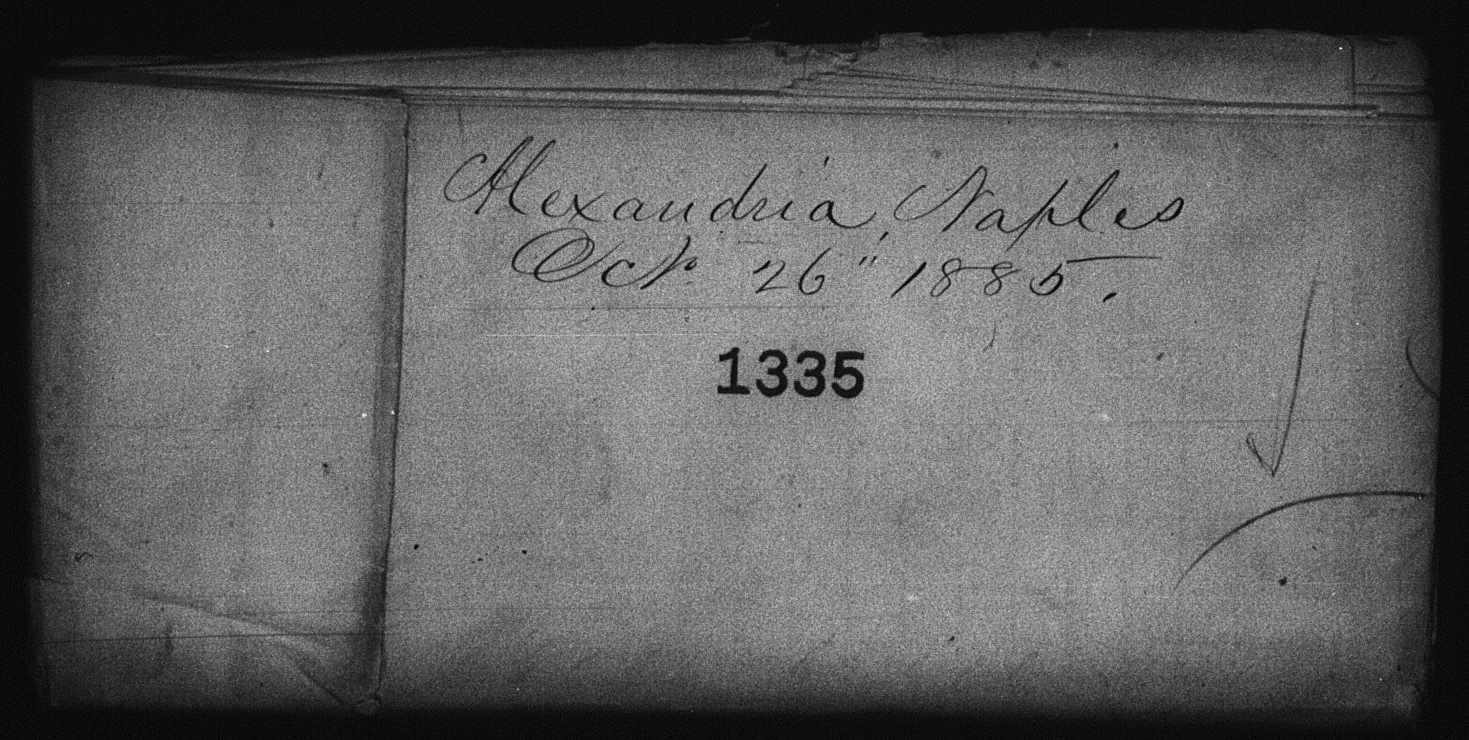 Alexandria, Naples
Oct. 26" 1885.
1335